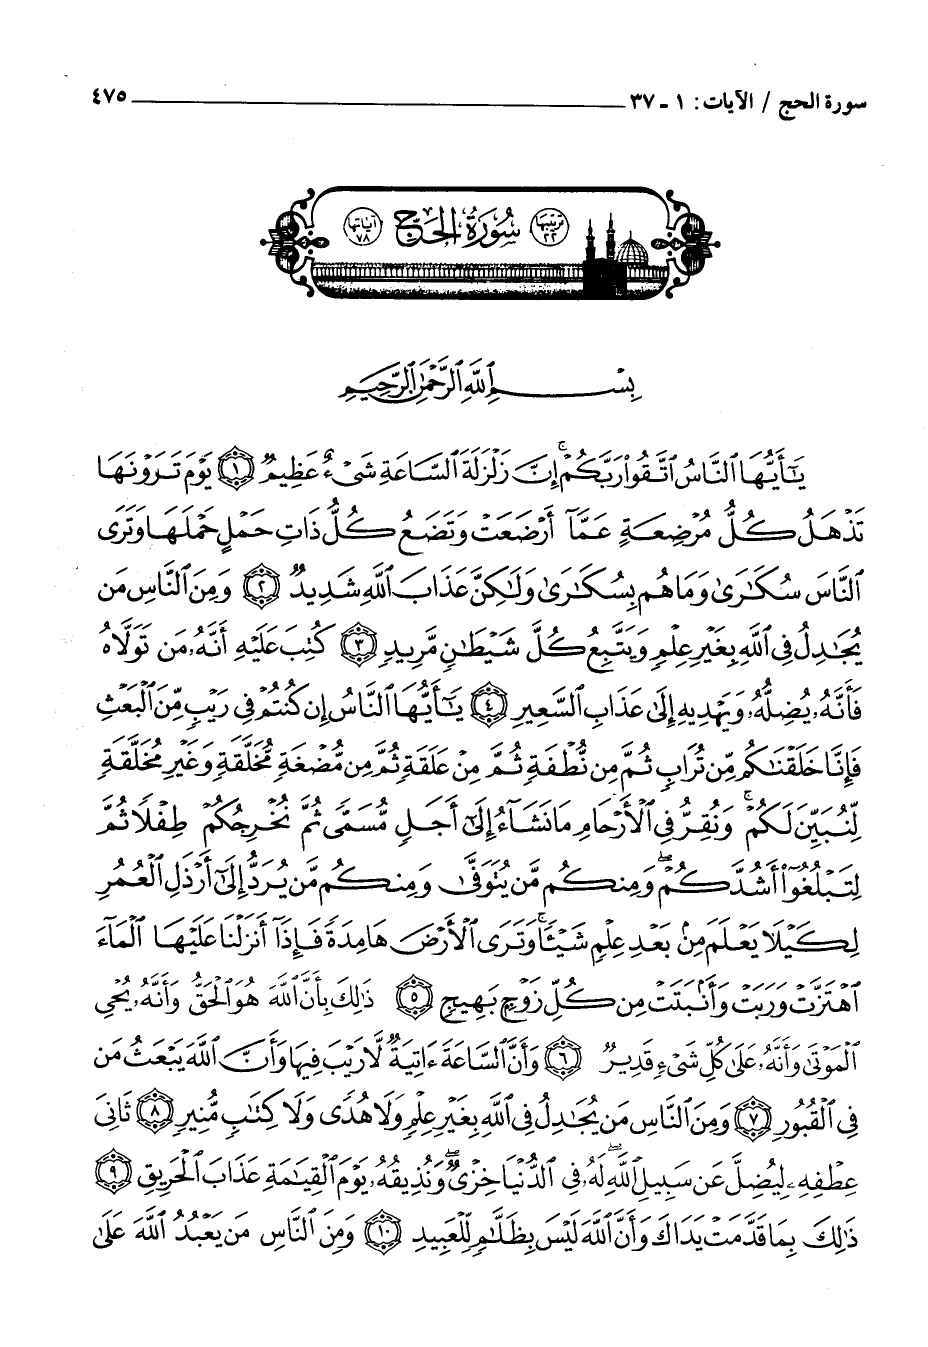 سورة الحج / الآيات: ١ ـ ٣٧ ٤٧٥
ترتيبها ٢٢ سُورَةُ الحَجّ آياتها ٧٨
بِسْمِ ٱللَّهِ ٱلرَّحْمَٰنِ ٱلرَّحِيمِ
يَٰٓأَيُّهَا ٱلنَّاسُ ٱتَّقُوا۟ رَبَّكُمْ ۚ إِنَّ زَلْزَلَةَ ٱلسَّاعَةِ شَىْءٌ عَظِيمٌ ١ يَوْمَ تَرَوْنَهَا
تَذْهَلُ كُلُّ مُرْضِعَةٍ عَمَّآ أَرْضَعَتْ وَتَضَعُ كُلُّ ذَاتِ حَمْلٍ حَمْلَهَا وَتَرَى
ٱلنَّاسَ سُكَٰرَىٰ وَمَا هُم بِسُكَٰرَىٰ وَلَٰكِنَّ عَذَابَ ٱللَّهِ شَدِيدٌ ٢ وَمِنَ ٱلنَّاسِ مَن
يُجَٰدِلُ فِى ٱللَّهِ بِغَيْرِ عِلْمٍ وَيَتَّبِعُ كُلَّ شَيْطَٰنٍ مَّرِيدٍ ٣ كُتِبَ عَلَيْهِ أَنَّهُۥ مَن تَوَلَّاهُ
فَأَنَّهُۥ يُضِلُّهُۥ وَيَهْدِيهِ إِلَىٰ عَذَابِ ٱلسَّعِيرِ ٤ يَٰٓأَيُّهَا ٱلنَّاسُ إِن كُنتُمْ فِى رَيْبٍ مِّنَ ٱلْبَعْثِ
فَإِنَّا خَلَقْنَٰكُم مِّن تُرَابٍ ثُمَّ مِن نُّطْفَةٍ ثُمَّ مِنْ عَلَقَةٍ ثُمَّ مِن مُّضْغَةٍ مُّخَلَّقَةٍ وَغَيْرِ مُخَلَّقَةٍ
لِّنُبَيِّنَ لَكُمْ ۚ وَنُقِرُّ فِى ٱلْأَرْحَامِ مَا نَشَآءُ إِلَىٰٓ أَجَلٍ مُّسَمًّى ثُمَّ نُخْرِجُكُمْ طِفْلًا ثُمَّ
لِتَبْلُغُوٓا۟ أَشُدَّكُمْ ۖ وَمِنكُم مَّن يُتَوَفَّىٰ وَمِنكُم مَّن يُرَدُّ إِلَىٰٓ أَرْذَلِ ٱلْعُمُرِ
لِكَيْلَا يَعْلَمَ مِنۢ بَعْدِ عِلْمٍ شَيْـًٔا ۚ وَتَرَى ٱلْأَرْضَ هَامِدَةً فَإِذَآ أَنزَلْنَا عَلَيْهَا ٱلْمَآءَ
ٱهْتَزَّتْ وَرَبَتْ وَأَنۢبَتَتْ مِن كُلِّ زَوْجٍۭ بَهِيجٍ ٥ ذَٰلِكَ بِأَنَّ ٱللَّهَ هُوَ ٱلْحَقُّ وَأَنَّهُۥ يُحْىِ
ٱلْمَوْتَىٰ وَأَنَّهُۥ عَلَىٰ كُلِّ شَىْءٍ قَدِيرٌ ٦ وَأَنَّ ٱلسَّاعَةَ ءَاتِيَةٌ لَّا رَيْبَ فِيهَا وَأَنَّ ٱللَّهَ يَبْعَثُ مَن
فِى ٱلْقُبُورِ ٧ وَمِنَ ٱلنَّاسِ مَن يُجَٰدِلُ فِى ٱللَّهِ بِغَيْرِ عِلْمٍ وَلَا هُدًى وَلَا كِتَٰبٍ مُّنِيرٍ ٨ ثَانِىَ
عِطْفِهِۦ لِيُضِلَّ عَن سَبِيلِ ٱللَّهِ ۖ لَهُۥ فِى ٱلدُّنْيَا خِزْىٌ ۖ وَنُذِيقُهُۥ يَوْمَ ٱلْقِيَٰمَةِ عَذَابَ ٱلْحَرِيقِ ٩
ذَٰلِكَ بِمَا قَدَّمَتْ يَدَاكَ وَأَنَّ ٱللَّهَ لَيْسَ بِظَلَّٰمٍ لِّلْعَبِيدِ ١٠ وَمِنَ ٱلنَّاسِ مَن يَعْبُدُ ٱللَّهَ عَلَىٰ